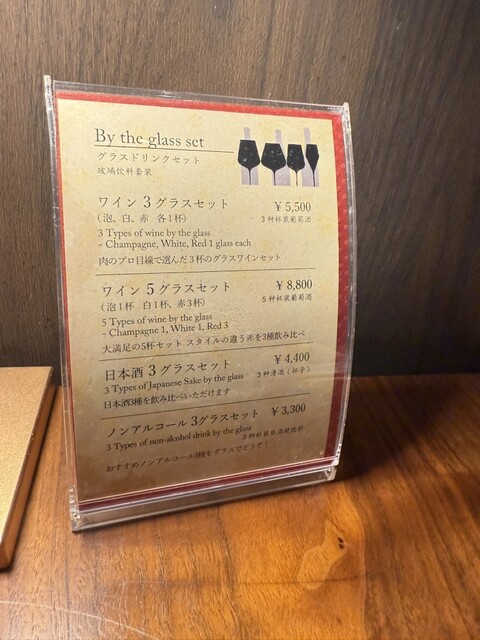 By the glass set
グラスドリンクセット
玻璃饮料套装
ワイン 3 グラスセット ¥ 5,500
(泡、白、赤 各1杯) 3 种杯装葡萄酒
3 Types of wine by the glass
- Champagne, White, Red 1 glass each
肉のプロ目線で選んだ3杯のグラスワインセット
ワイン 5 グラスセット ¥ 8,800
(泡1杯 白1杯、赤3杯) 5 种杯装葡萄酒
5 Types of wine by the glass
- Champagne 1, White 1, Red 3
大満足の5杯セット スタイルの違う赤を3種飲み比べ
日本酒 3 グラスセット ¥ 4,400
3 Types of Japanese Sake by the glass 3 种清酒(杯子)
日本酒3種を飲み比べいただけます
ノンアルコール 3グラスセット ¥ 3,300
3 Types of non-alcohol drink by the glass 3 种杯装非酒精饮料
おすすめノンアルコール3種をグラスでどうぞ!